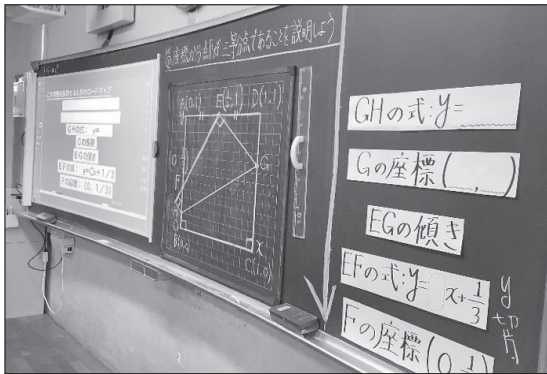 座標から点Fが三等分点であることを説明しよう
GHの式: y=
Gの座標
EGの傾き
EFの式: y=○x+1/3
Fの座標: (0, 1/3)
A(0,1)
E(½,1)
D(1,1)
G
F
H
B(0,0)
x
C(1,0)
GHの式:y=
Gの座標( , )
EGの傾き
EFの式:y= x+1/3
y切片
Fの座標(0,1/3